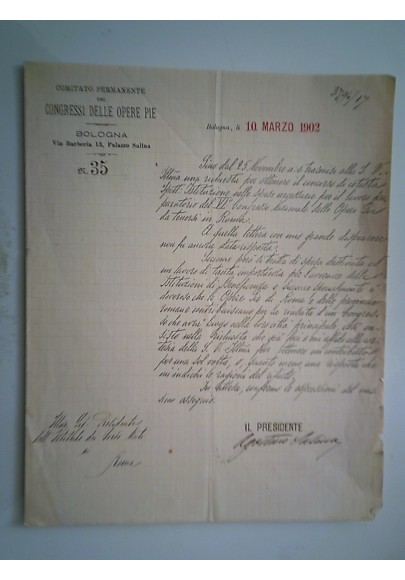 COMITATO PERMANENTE
DEI
CONGRESSI DELLE OPERE PIE
BOLOGNA
Via Barberia 13, Palazzo Salina
N. 35
Bologna, li 10 MARZO 1902
Fino dal 25 Novembre a.s. trasmisi alla S. V.
Ill.ma una richiesta per ottenere il concorso di
Spett. Istituzione nelle spese per il lavoro
paratorio del VI° Congresso Nazionale delle Opere Pie
da tenersi in Roma.
A quella lettera con mio grande dispiacere
non fu ancora data risposta.
Siccome però si tratta di spesa destinata ad
un lavoro di tanta importanza per l'avvenire delle
Istituzioni di Beneficenza e
doveroso che le Opere Pie di Roma e della provincia
romana per la riuscita d'un Congresso
che avrà luogo nella loro città principale,
sisto nella richiesta che già feci e mi affido alla
della S. V. Ill.ma per ottenere un contributo
per una sol volta, o quanto meno una risposta che
mi indichi le ragioni del rifiuto.
In attesa, confermo le espressioni del mas-
simo ossequio.
IL PRESIDENTE
Ill.mo Sig. Presidente
dell'Istituto dei Sordo Muti
di
Roma